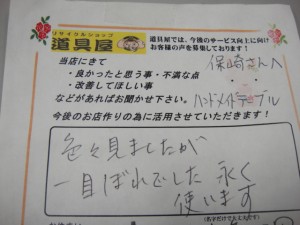 リサイクルショップ
道具屋
道具屋では、今後のサービス向上に向け
お客様の声を募集しております!
当店にきて
・良かったと思う事・不満な点
・改善してほしい事
などがあればお聞かせ下さい。
今後のお店作りの為に活用させていただきます!
保崎さんへ
ハンドメイドテーブル
色々見ましたが
一目ぼれでした 永く
使います